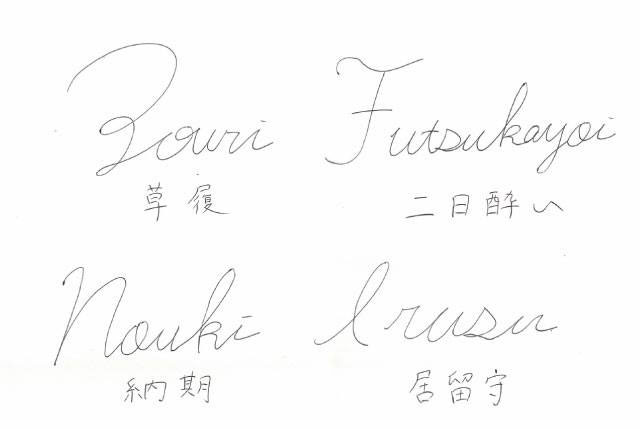 Zouri
草履
Futsukayoi
二日酔い
Nouki
納期
Irusu
居留守